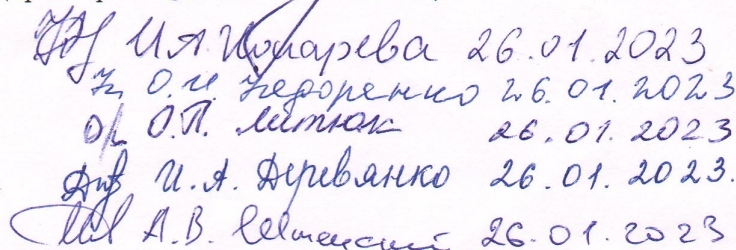 И.А. Кошарева 26.01.2023
О.И. Федоренко 26.01.2023
О.П. Литюк 26.01.2023
И.А. Деревянко 26.01.2023.
А.В. 26.01.2023